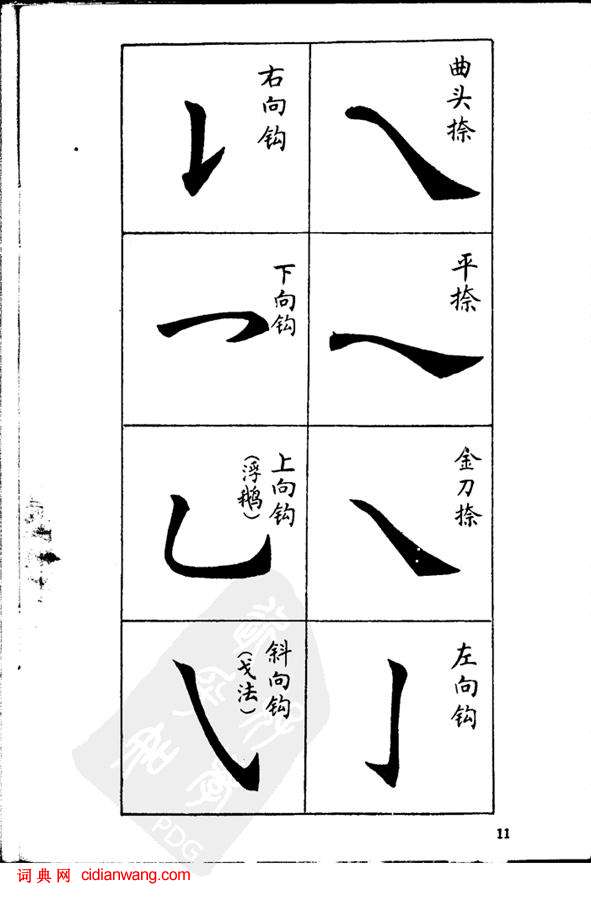 曲头捺
平捺
金刀捺
左向钩
右向钩
下向钩
上向钩
(浮鹅)
斜向钩
(戈法)
11
PDG
词典网 cidianwang.com